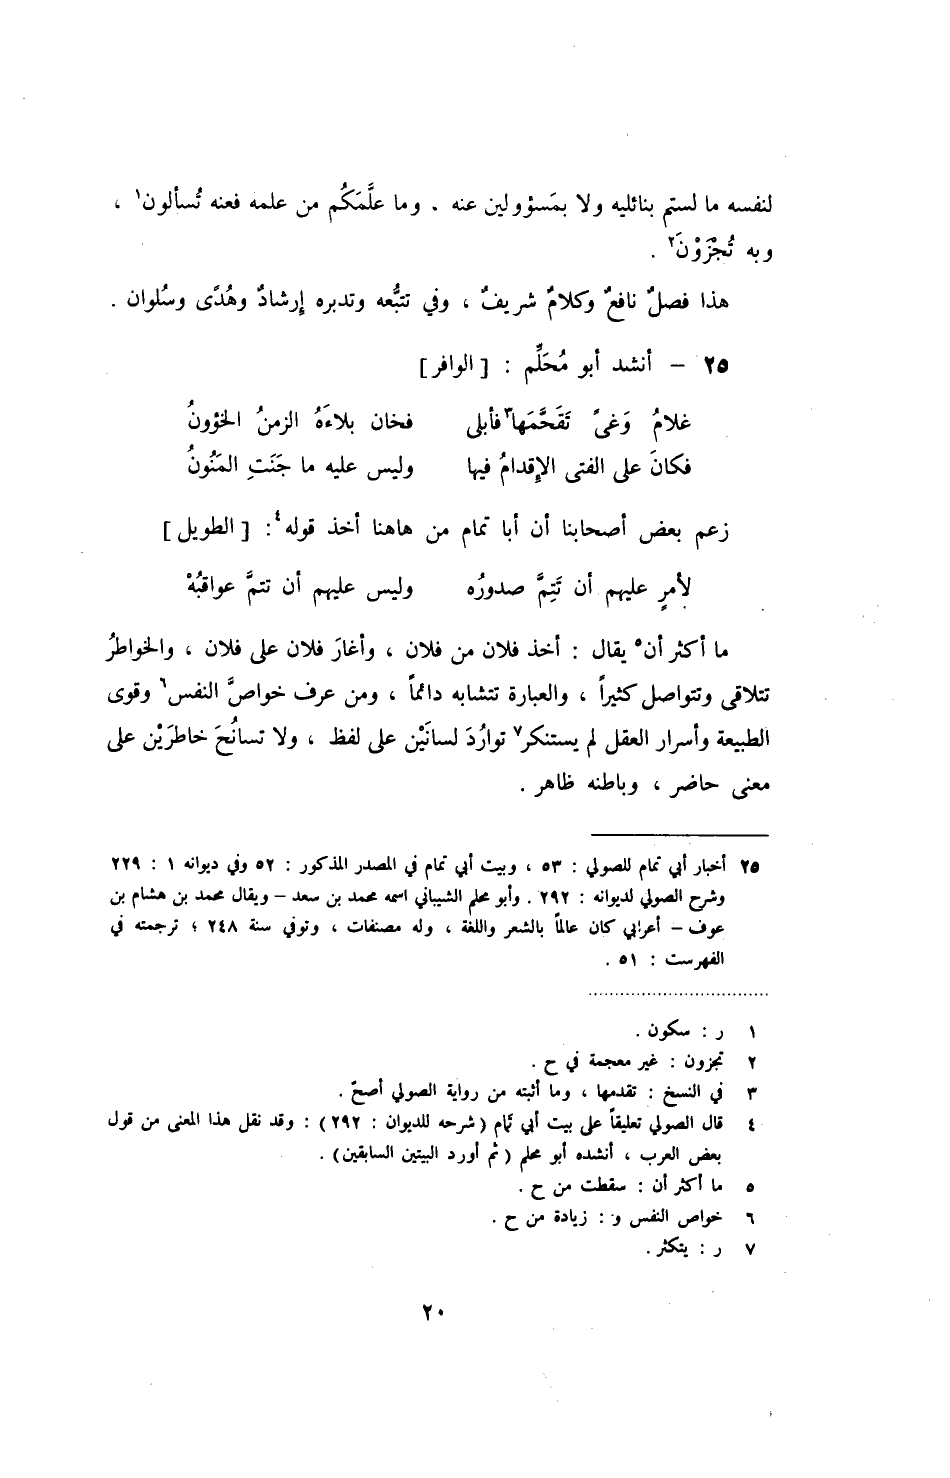 لنفسه ما لستم بنائليه ولا بمَسؤولين عنه . وما علَّمَكُم من علمه فعنه تُسألون١ ،
وبه تُجْزَوْنَ٢ .
هذا فصلٌ نافعٌ وكلامٌ شريفٌ ، وفي تتبُّعه وتدبره إرشادٌ وهُدًى وسُلوان .
٢٥ – أنشد أبو مُحَلِّم : [ الوافر ]
غلامُ وَغىً تَقَحَّمَها٣ فأبلى فخان بلاءَهُ الزمنُ الخؤونُ
فكانَ على الفتى الإقدامُ فيها وليس عليه ما جَنَتِ المَنُونُ
زعم بعض أصحابنا أن أبا تمام من هاهنا أخذ قوله٤ : [ الطويل ]
لأمرٍ عليهم أن تَتِمَّ صدورُه وليس عليهم أن تتمَّ عواقبُهْ
ما أكثر أن٥ يقال : أخذ فلان من فلان ، وأغارَ فلان على فلان ، والخواطرُ
تتلاقى وتتواصل كثيراً ، والعبارة تتشابه دائماً ، ومن عرف خواصَّ النفس٦ وقوى
الطبيعة وأسرار العقل لم يستنكر٧ توارُدَ لسانَيْن على لفظ ، ولا تسانُحَ خاطرَيْن على
معنى حاضر ، وباطنه ظاهر .
٢٥ أخبار أبي تمام للصولي : ٥٣ ، وبيت أبي تمام في المصدر المذكور : ٥٢ وفي ديوانه ١ : ٢٢٩
وشرح الصولي لديوانه : ٢٩٢ . وأبو محلم الشيباني اسمه محمد بن سعد – ويقال محمد بن هشام بن
عوف – أعرابي كان عالماً بالشعر واللغة ، وله مصنفات ، وتوفي سنة ٢٤٨ ؛ ترجمته في
الفهرست : ٥١ .
١ ر : سكون .
٢ تجزون : غير معجمة في ح .
٣ في النسخ : تقدمها ، وما أثبته من رواية الصولي أصحّ .
٤ قال الصولي تعليقاً على بيت أبي تمام ( شرحه للديوان : ٢٩٢ ) : وقد نقل هذا المعنى من قول
بعض العرب ، أنشده أبو محلم ( ثم أورد البيتين السابقين ) .
٥ ما أكثر أن : سقطت من ح .
٦ خواص النفس و : زيادة من ح .
٧ ر : يتكثر .
٢٠